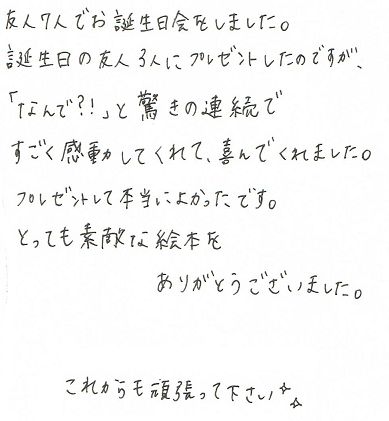 友人7人でお誕生日会をしました。
誕生日の友人3人にプレゼントしたのですが、
「なんで?!」と驚きの連続で
すごく感動してくれて、喜んでくれました。
プレゼントして本当によかったです。
とっても素敵な絵本を
ありがとうございました。
これからも頑張って下さい